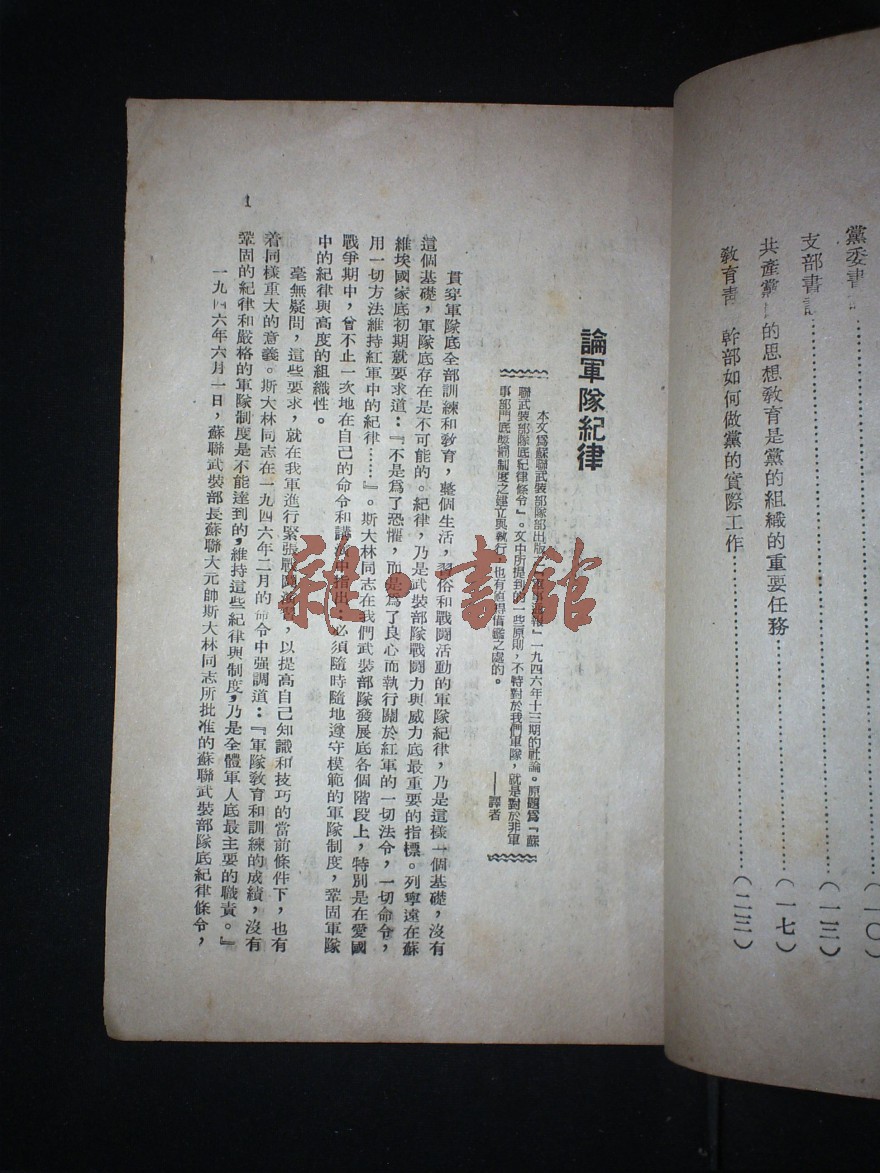 黨委書
支部書記……………………(一〇)
共產黨 的思想敎育是黨的組織的重要任務……………………(一三)
敎育靑 幹部如何做黨的實際工作……………………(一七)
(二三)
論軍隊紀律
本文爲蘇聯武裝部隊部出版之「軍事通報」一九四六年十三期的社論。原題爲『蘇
聯武裝部隊底紀律條令』。文中所提到的一些原則,不特對於我們軍隊,就是對於非軍
事部門底獎懲制度之建立與執行,也有値得借鑑之處的。
——譯者
貫穿軍隊底全部訓練和敎育,整個生活,習俗和戰鬪活動的軍隊紀律,乃是這樣一個基礎,沒有
這個基礎,軍隊底存在是不可能的。紀律,乃是武裝部隊戰鬪力與威力底最重要的指標。列寧遠在蘇
維埃國家底初期就要求道:『不是爲了恐懼,而是爲了良心而執行關於紅軍的一切法令,一切命令,
用一切方法維持紅軍中的紀律……』。斯大林同志在我們武裝部隊發展底各個階段上,特別是在愛國
戰爭期中,曾不止一次地在自己的命令和講演中指出:必須隨時隨地遵守模範的軍隊制度,鞏固軍隊
中的紀律與高度的組織性。
毫無疑問,這些要求,就在我軍進行緊張戰鬪演習,以提高自己知識和技巧的當前條件下,也有
着同樣重大的意義。斯大林同志在一九四六年二月的命令中强調道:『軍隊敎育和訓練的成績,沒有
鞏固的紀律和嚴格的軍隊制度是不能達到的,維持這些紀律與制度,乃是全體軍人底最主要的職責。』
一九四六年六月一日,蘇聯武裝部長蘇聯大元帥斯大林同志所批准的蘇聯武裝部隊底紀律條令,
1
雜·書館